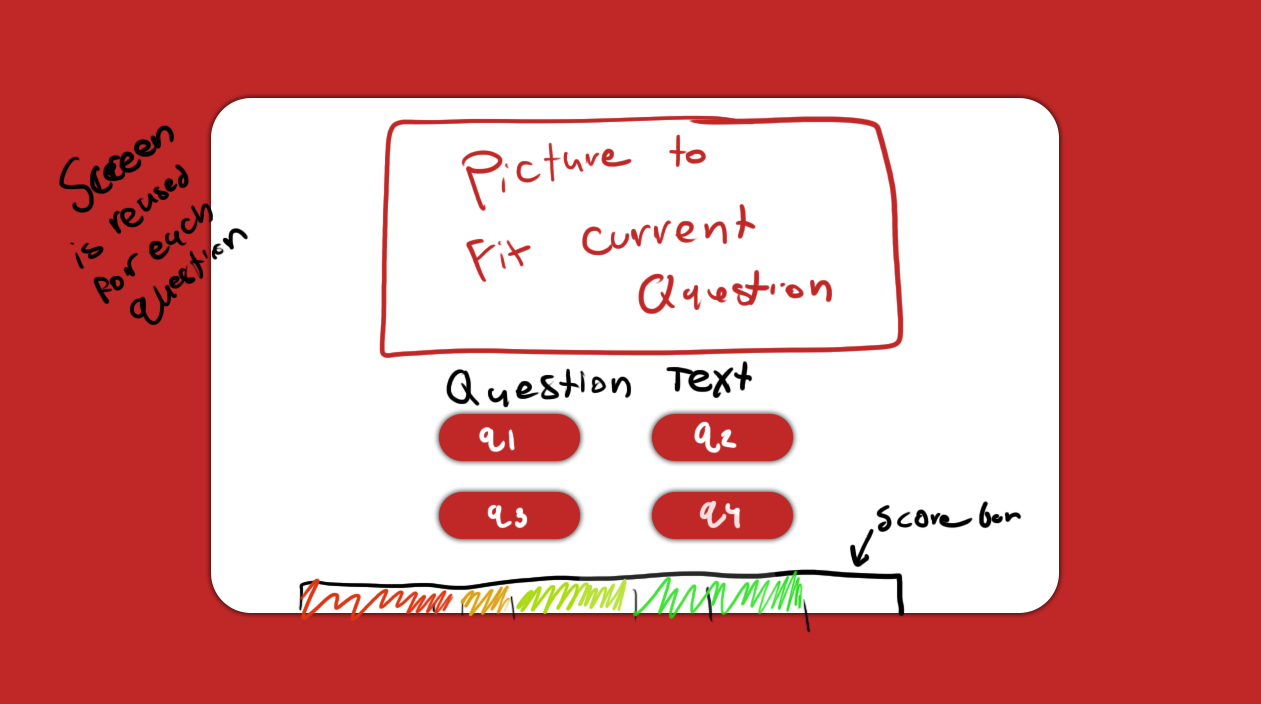 Screen
is reused
for each
Question
Picture to
Fit current
Question
Question Text
q1
q2
q3
q4
Score bar